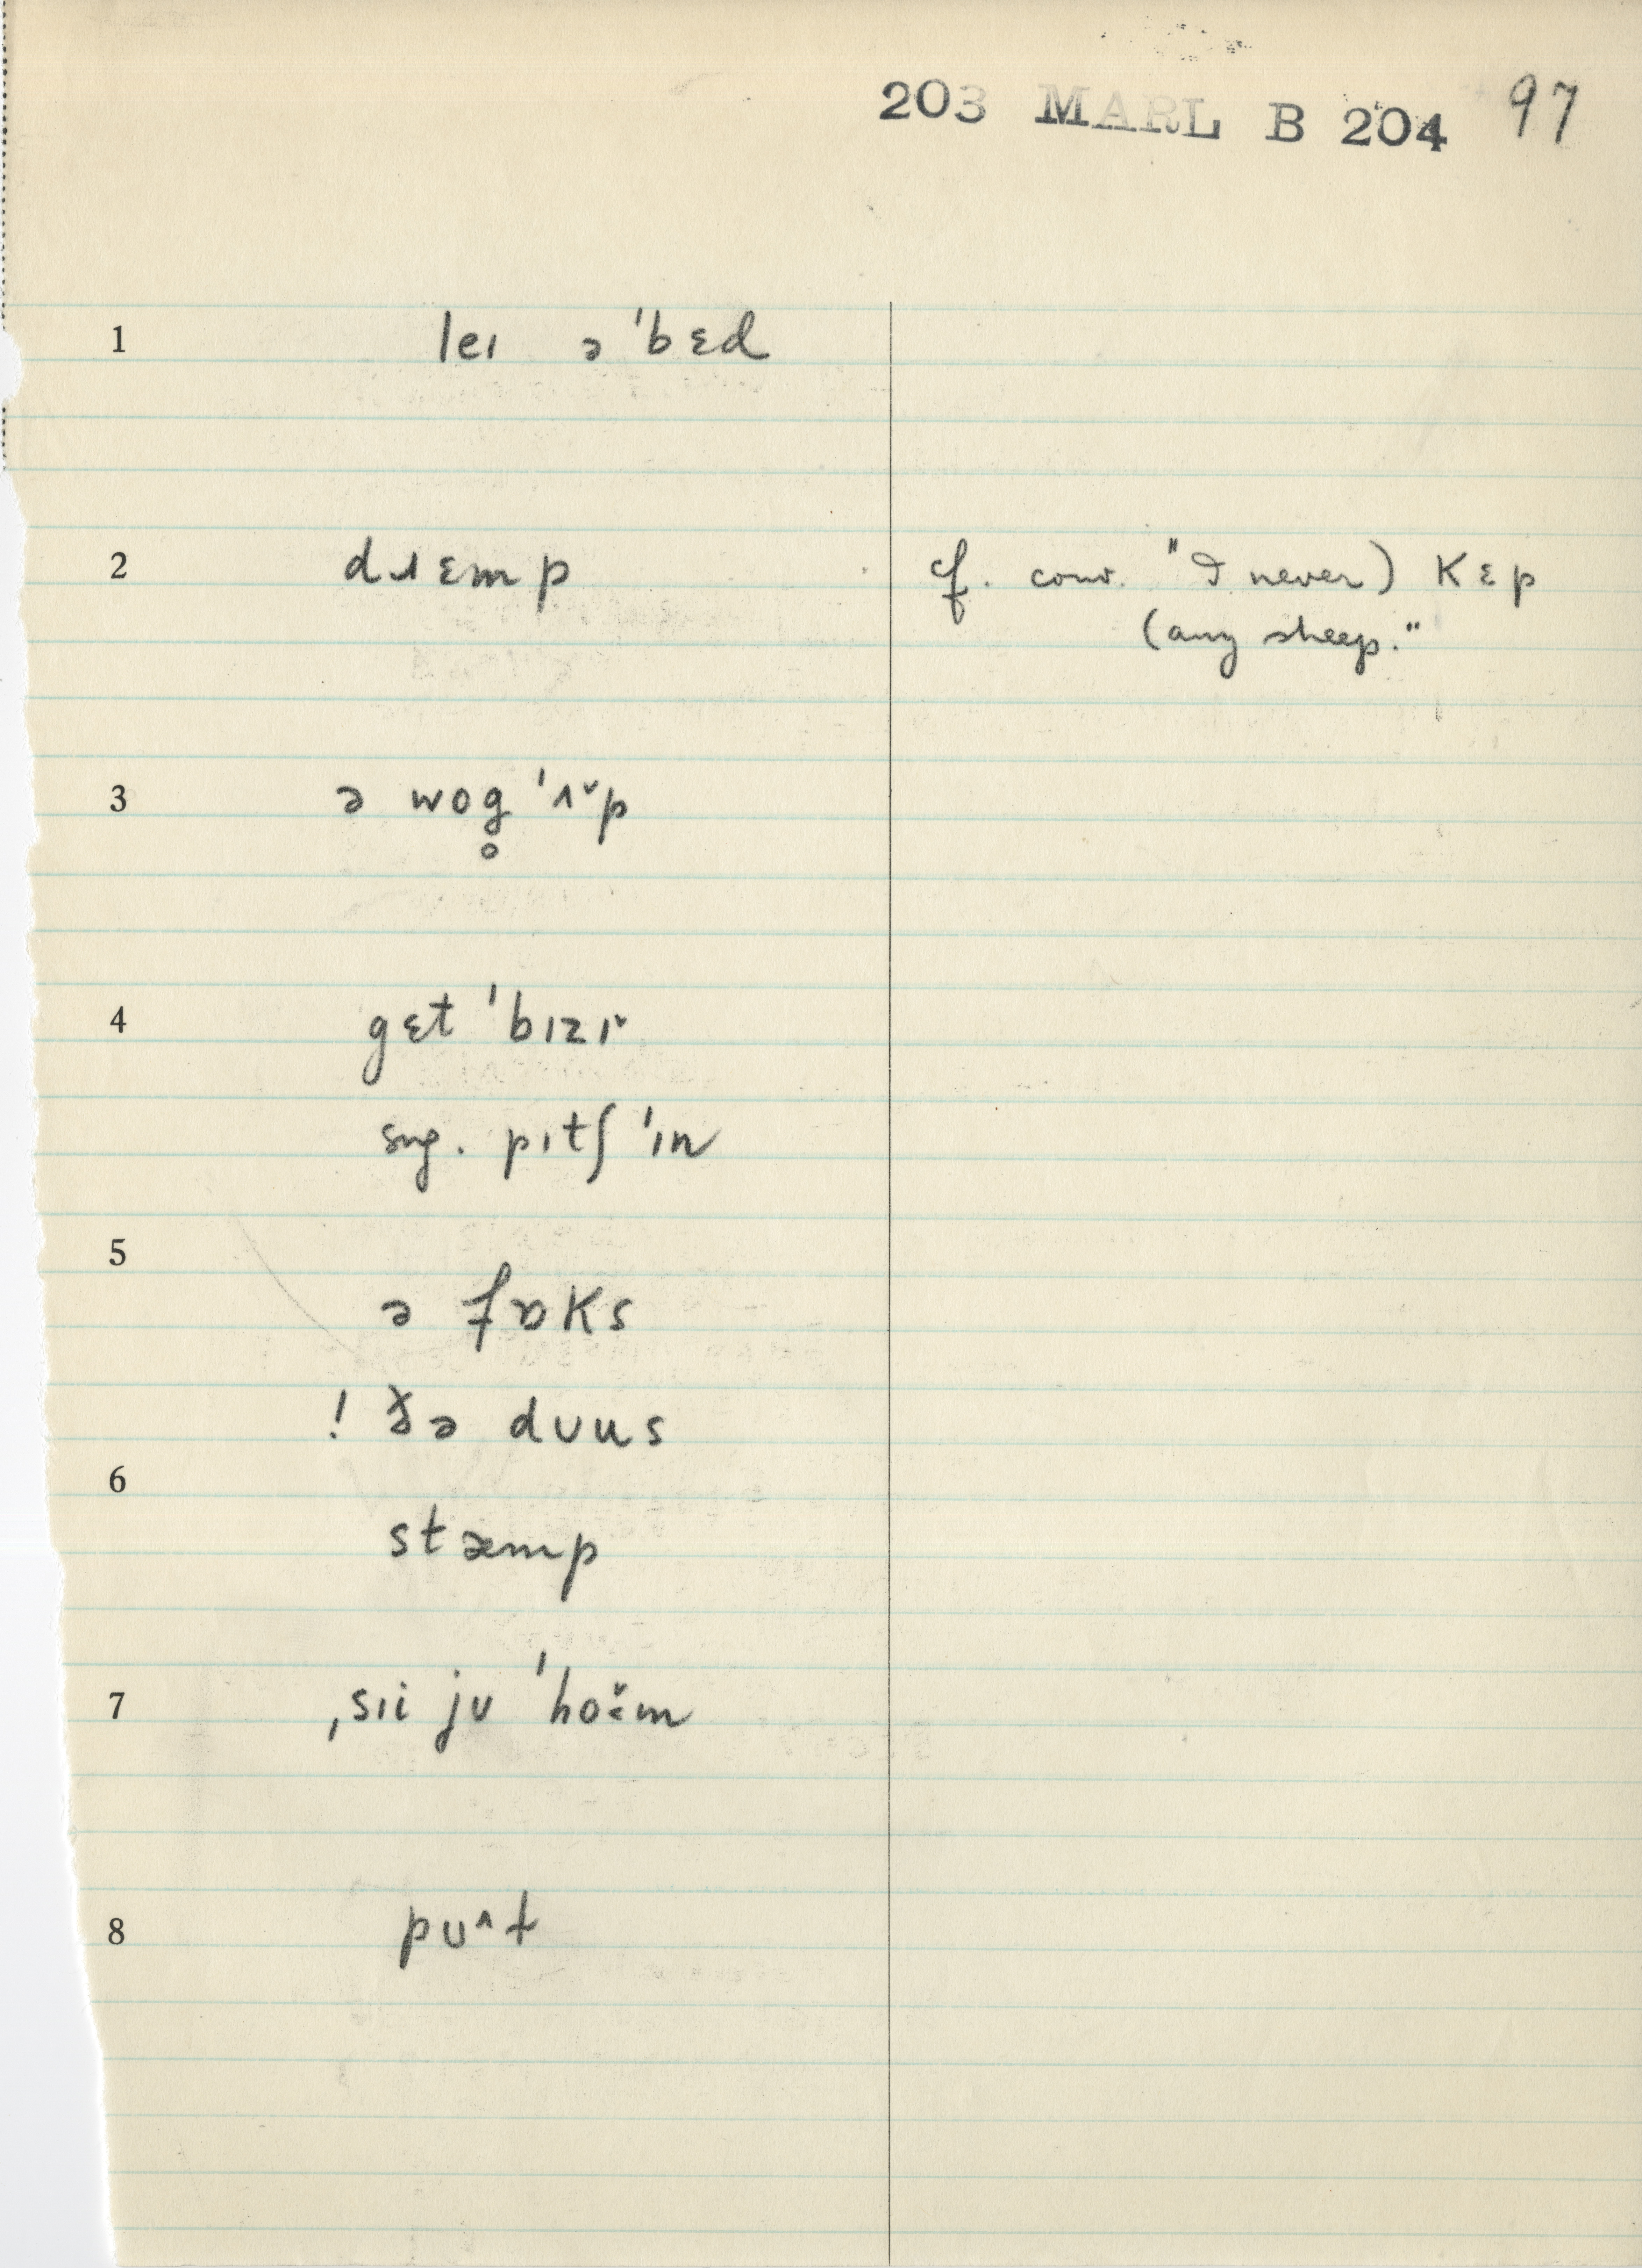 203 MARL B 204 97
1 leɪ ə ˈbɛd
2 dɹɛmp cf. conv. "I never) kɛp
(any sheep."
3 ə wog̥ ˈʌ˅p
4 gɛt ˈbɪzɪ˅
sug. pɪtʃ ˈɪn
5 ə fɒks
! ðə dʊus
6 stæmp
7 ˌsɪi jʊ ˈho˅:m
8 pʊ^t